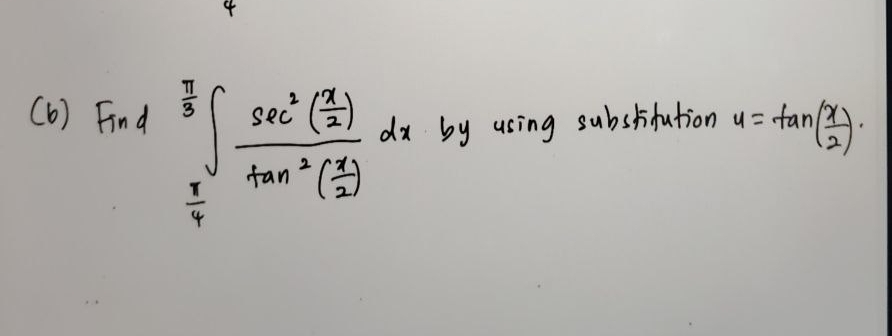 4
(b) Find ∫_{π/4}^{π/3} sec² (x/2) / tan² (x/2) dx by using substitution u = tan(x/2).